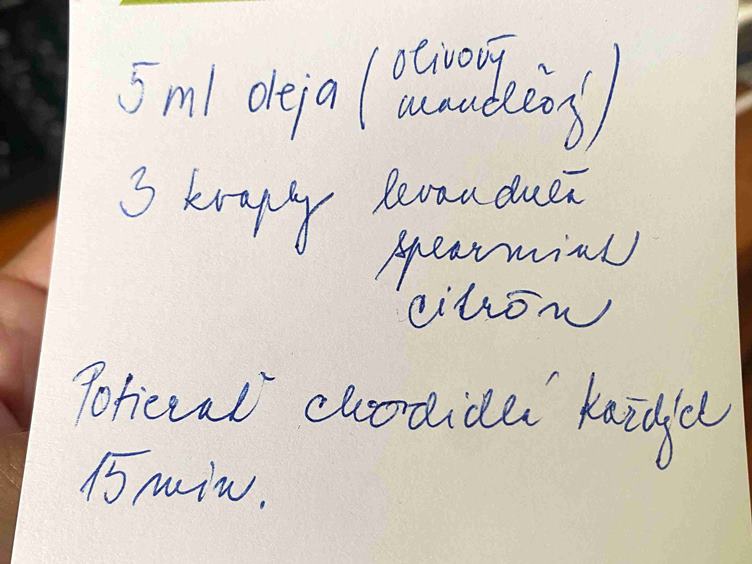 5 ml oleja (olivový
mandľový)
3 kvapky levanduľa
spearmint
citrón
Potierať chodidlá každých
15 min.